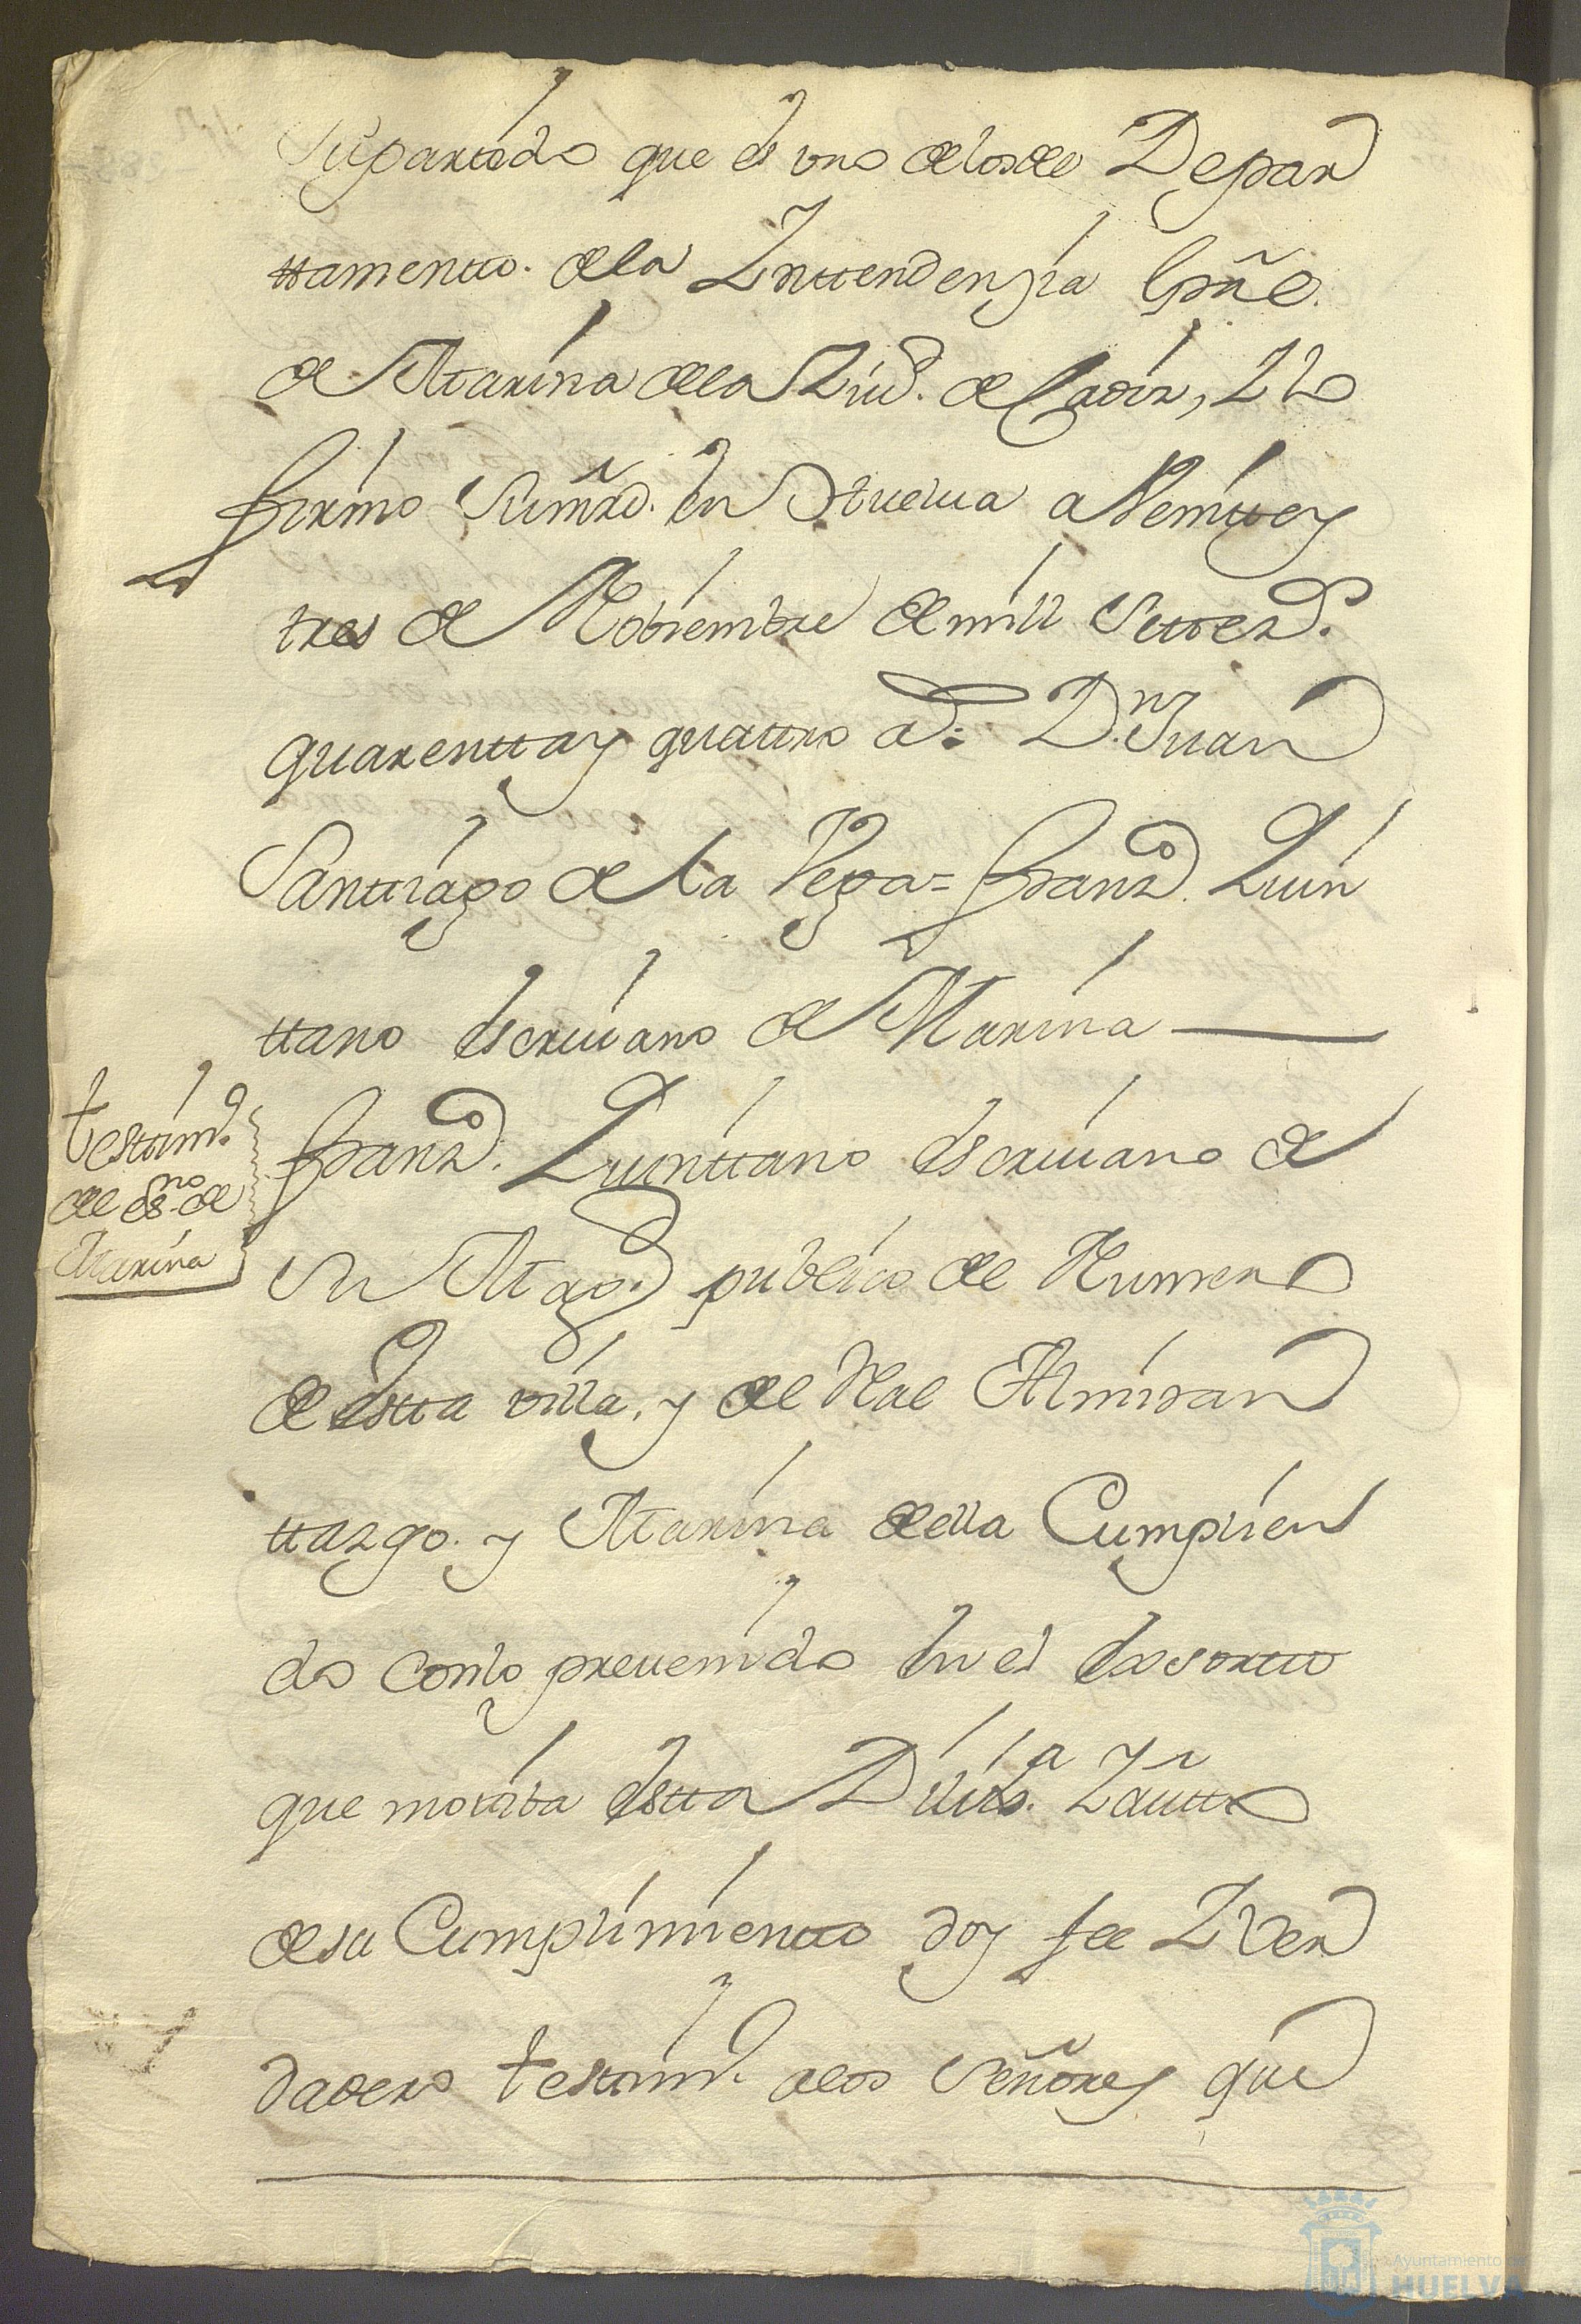 Su partido que es uno delosdel Depar
ttamentto. dela Inttendenzia Grâl.
de Marina dela Ziud. de Cadiz, I lo
firmo Su mrd. en Huelua a Veintte y
tres de Nobiembre de mill Settez.s
quarentta y quattro a.s D.n Juan
Santtiago de la Vega = Franz.co Quin
ttano escriuano de Marina
testim.o
del es.no de
Marina
Franz.co Quinttano escriuano de
Su Mag.d publico del Numero
de estta villa, y del Rl Almiran
ttazgo. y Marina della Cumplien
do con lo preuenido en el exsortto
que motiba estta Dilix.a I autto
de su Cumplimientto doy fee I Ver
dadero testim.o alos Señores que
Ayuntamiento de
HUELVA